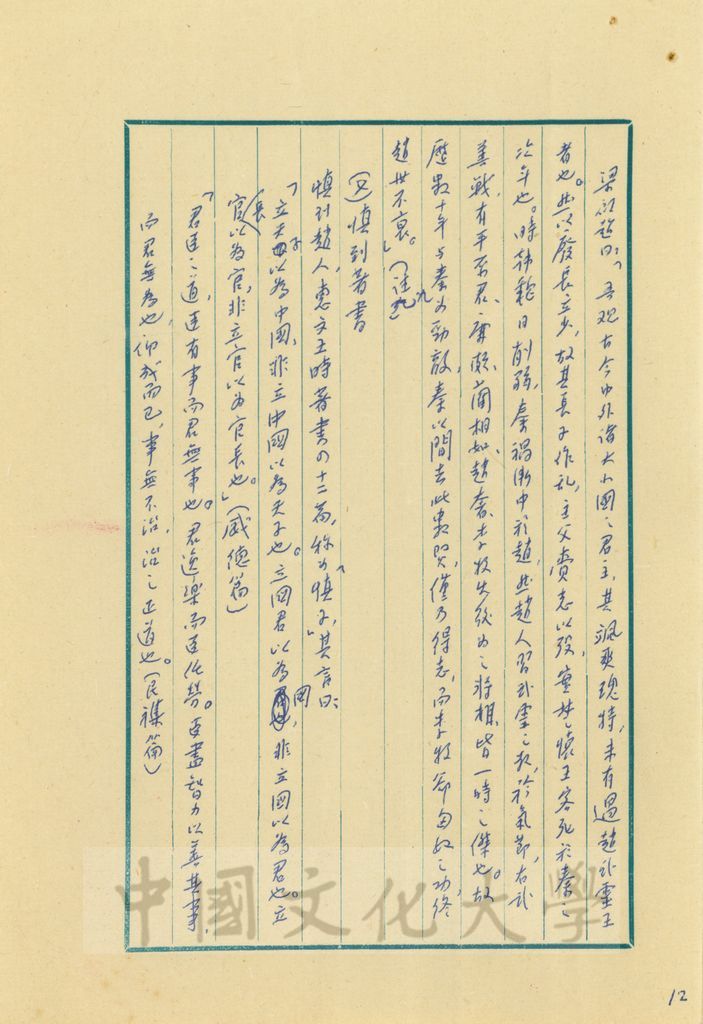 梁啟超曰:「吾观古今中外諸大小國之君主,其颯爽瑰特,未有過趙武靈王
者也。然以廢長立少,故其長子作乱,主父賫志以殁,實於懷王客死於秦之
次年也。時韩魏日削弱,秦禍漸中於趙,然趙人習武靈之教,於氣節,右武
善戰,有平原君、廉頗、藺相如、趙奢、李牧先後为之將相,皆一時之傑也。故
歷數十年与秦为勁敵,秦以間去此數賢,僅乃得志,而李牧卻匈奴之功,終
趙世不衰。」(註九)
(又)慎到著書
慎到趙人,惠文王時著書四十二篇,称为「慎子」,其言曰:
「立天子以為中國,非立中國以為天子也。立國君以為國,非立國以為君也。立
官長以為官,非立官以为官長也。」(威德篇)
「君臣之道,臣有事而君無事也。君逸樂而臣任勞。臣盡智力以善其事,
而君無為也,仰成而已,事無不治,治之正道也。(民襍篇)
中國文化大學
12